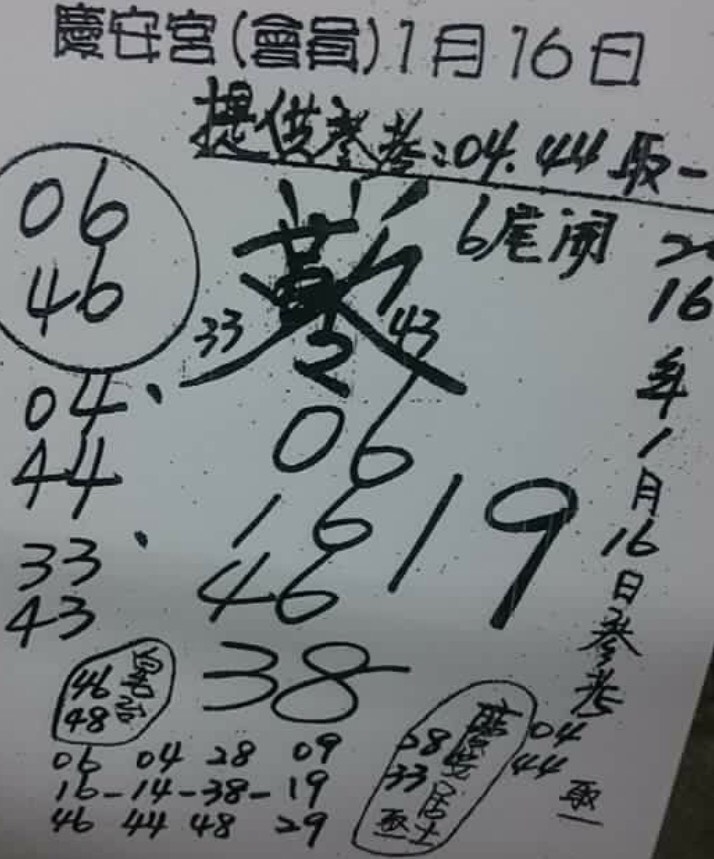 慶安宮(會員)1月16日
提供參考:04.44取一
6尾開
06
46
33
43
04
44
33
43
06
16
46
19
38
16
年
1
月
16
日
參
考
46
48
06 04 28 09
16-14-38-19
46 44 48 29
28
33
居士
取
04
44
取一